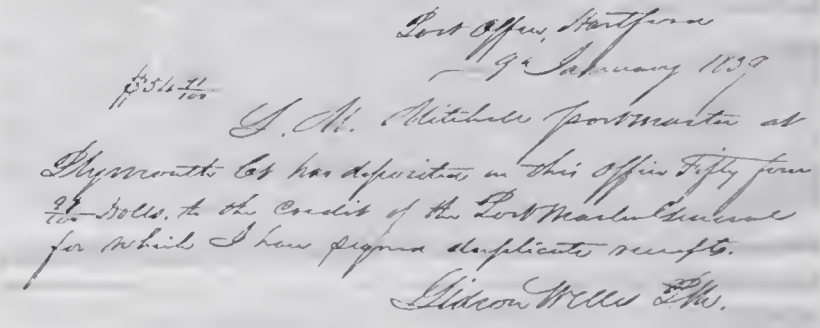 Post Office, Hartford
9th January 1839
$54 71/100
S. M. Mitchell postmaster at
Plymouth Ct has deposited in this Office Fifty four
71/100 Dolls. to the credit of the Post Master General
for which I have signed duplicate receipts.
Gideon Welles P.M.